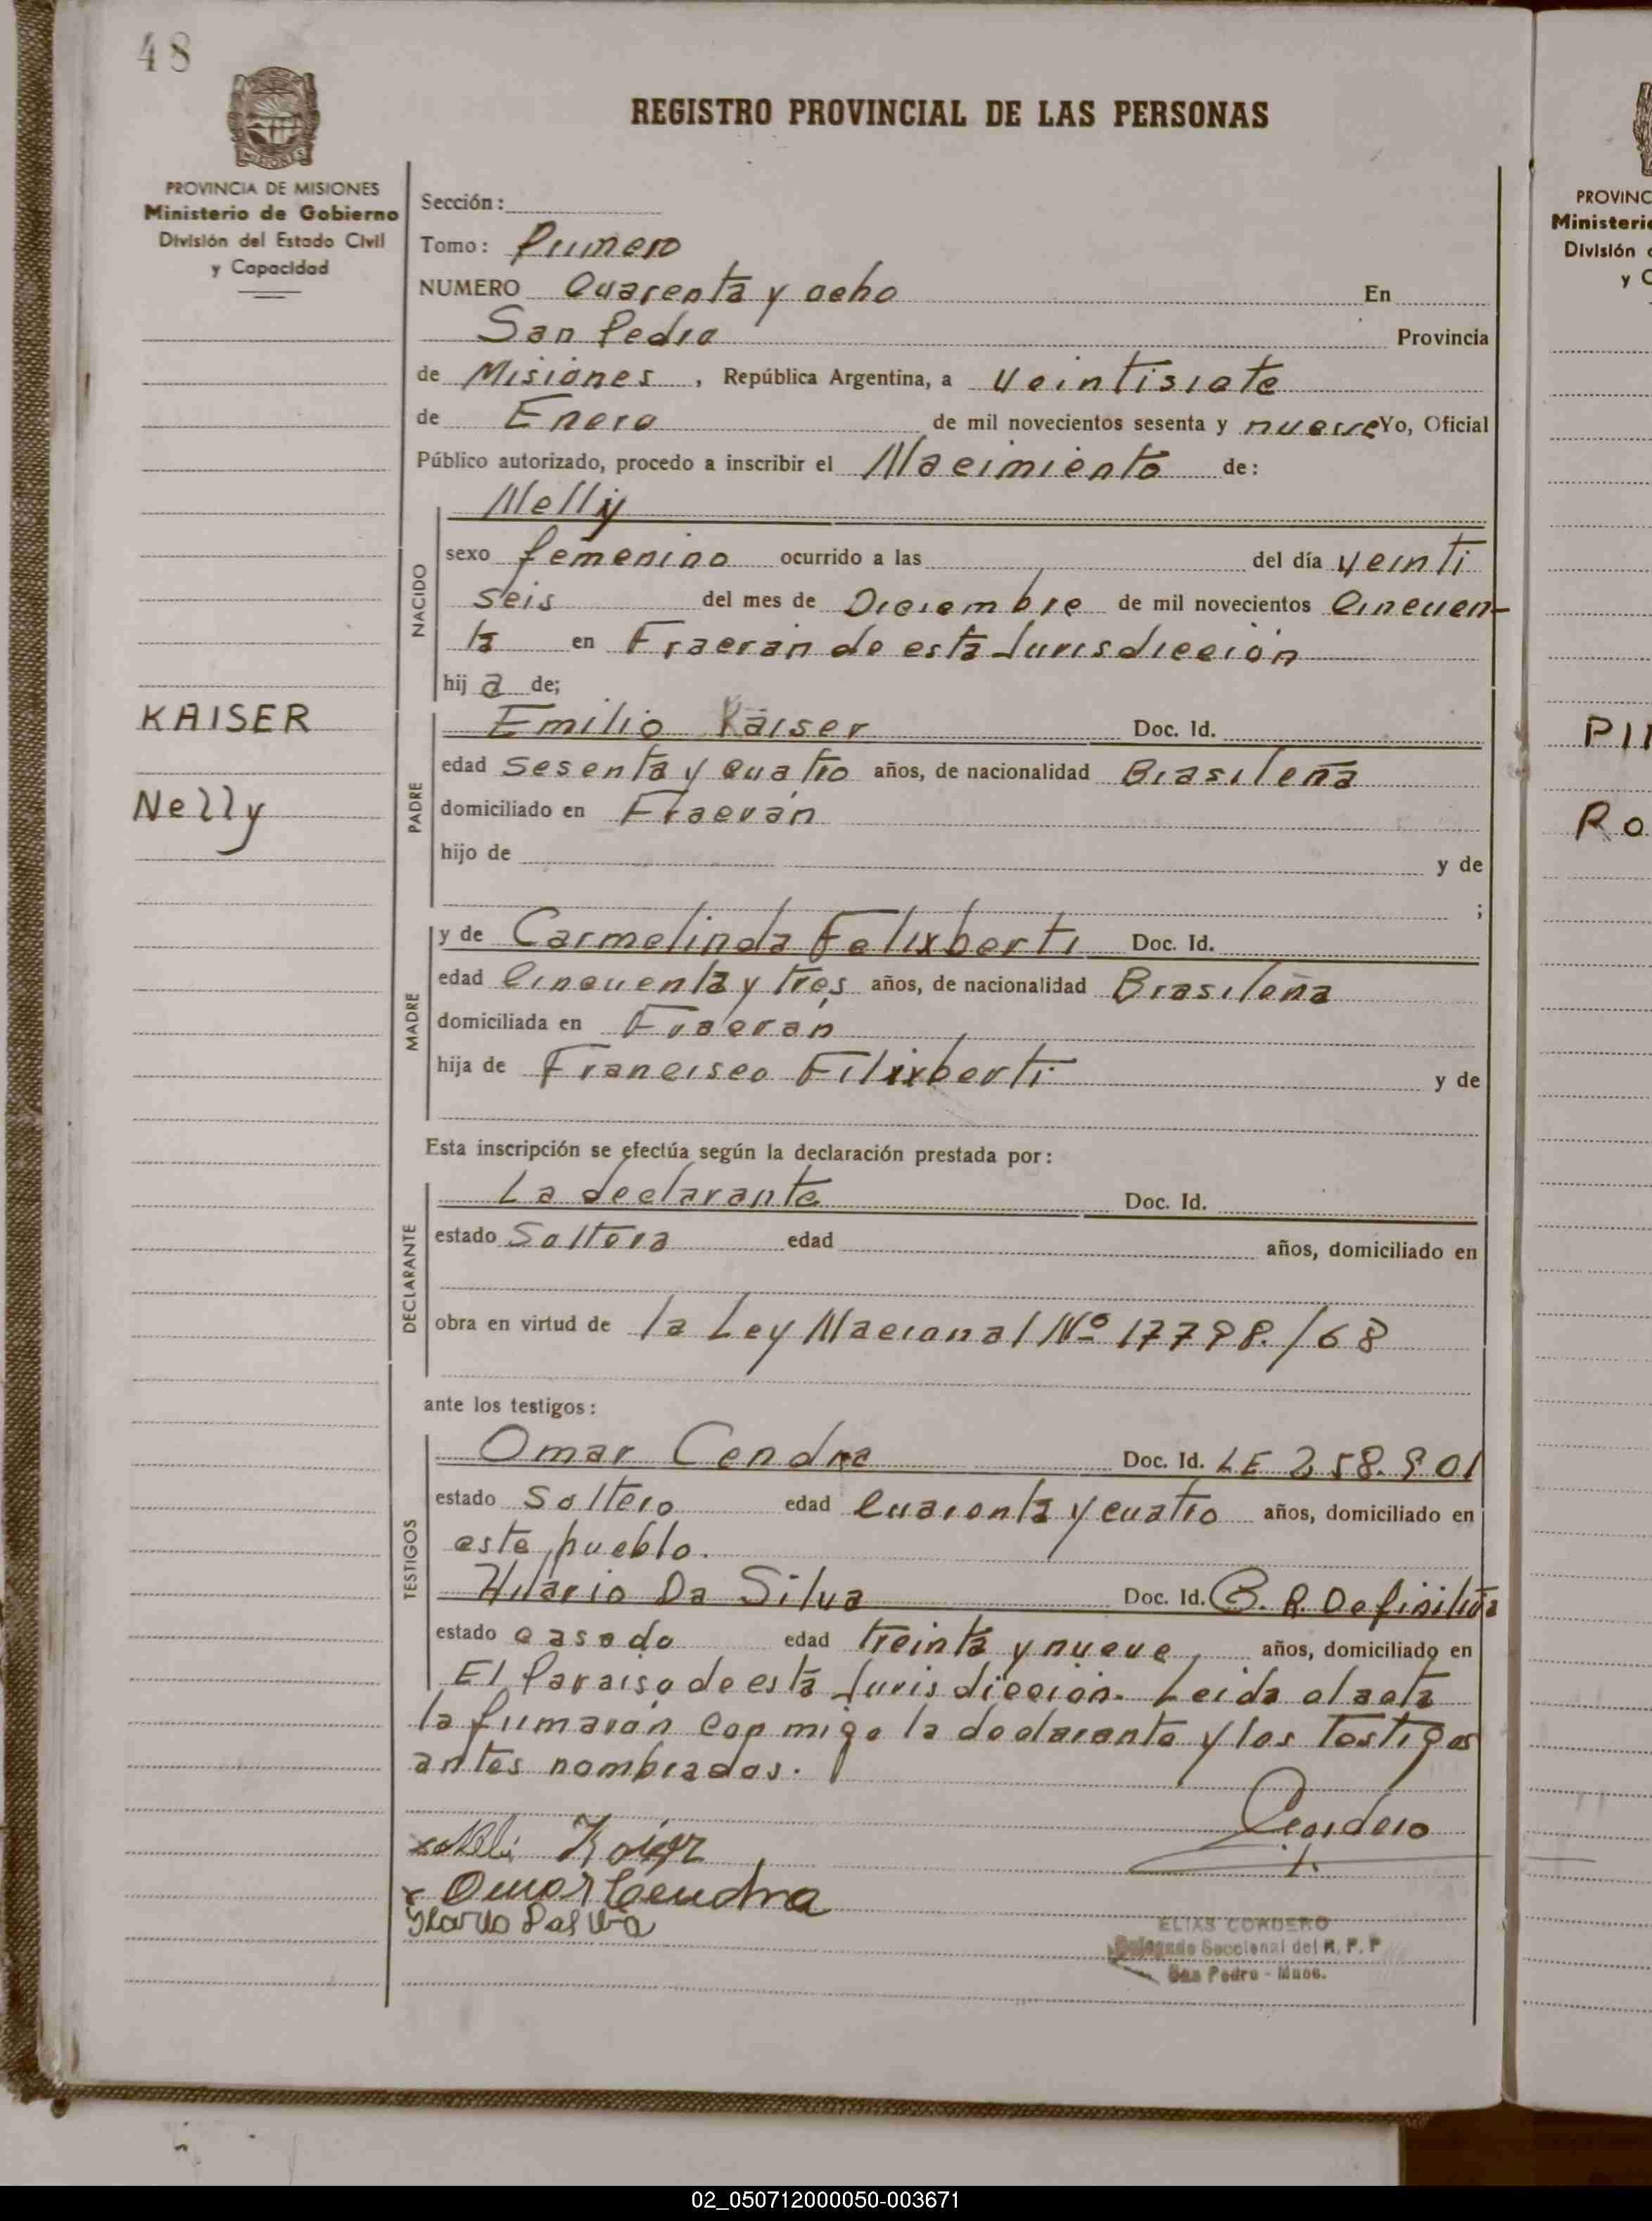 48
REGISTRO PROVINCIAL DE LAS PERSONAS
PROVINCIA DE MISIONES
Ministerio de Gobierno
División del Estado Civil
y Capacidad
KAISER
Nelly
Sección:
Tomo: Primero
NUMERO Cuarenta y ocho En
San Pedro Provincia
de Misiones, República Argentina, a Veintisiete
de Enero de mil novecientos sesenta y nueve Yo, Oficial
Público autorizado, procedo a inscribir el Nacimiento de:
Nelly
NACIDO
sexo femenino ocurrido a las del día veinti
seis del mes de Diciembre de mil novecientos Cincuen-
ta en Fracrán de esta Jurisdicción
hija de;
PADRE
Emilio Kaiser Doc. Id.
edad sesenta y cuatro años, de nacionalidad Brasileña
domiciliado en Fracrán
hijo de y de
;
MADRE
y de Carmelinda Felixberti Doc. Id.
edad Cincuenta y tres años, de nacionalidad Brasileña
domiciliada en Fracrán
hija de Francisco Filixberti y de
Esta inscripción se efectúa según la declaración prestada por:
DECLARANTE
La declarante Doc. Id.
estado Soltera edad años, domiciliado en
obra en virtud de la Ley Nacional Nº 17798./68
ante los testigos:
TESTIGOS
Omar Cendra Doc. Id. LE 258.901
estado Soltero edad Cuarenta y cuatro años, domiciliado en
este pueblo.
Hilario Da Silva Doc. Id. B. R. Definitiva
estado casado edad treinta y nueve años, domiciliado en
El Paraiso de esta Jurisdicción. Leida el acta
la firmaron conmigo la declarante y los testigos
antes nombrados.
Cordero
Omar Cendra
ELIAS CORDERO
Delegado Seccional del R. P. P
San Pedro - Mnes.
PROVINC
Ministerio
División d
y C
PIN
Ro
02_050712000050-003671